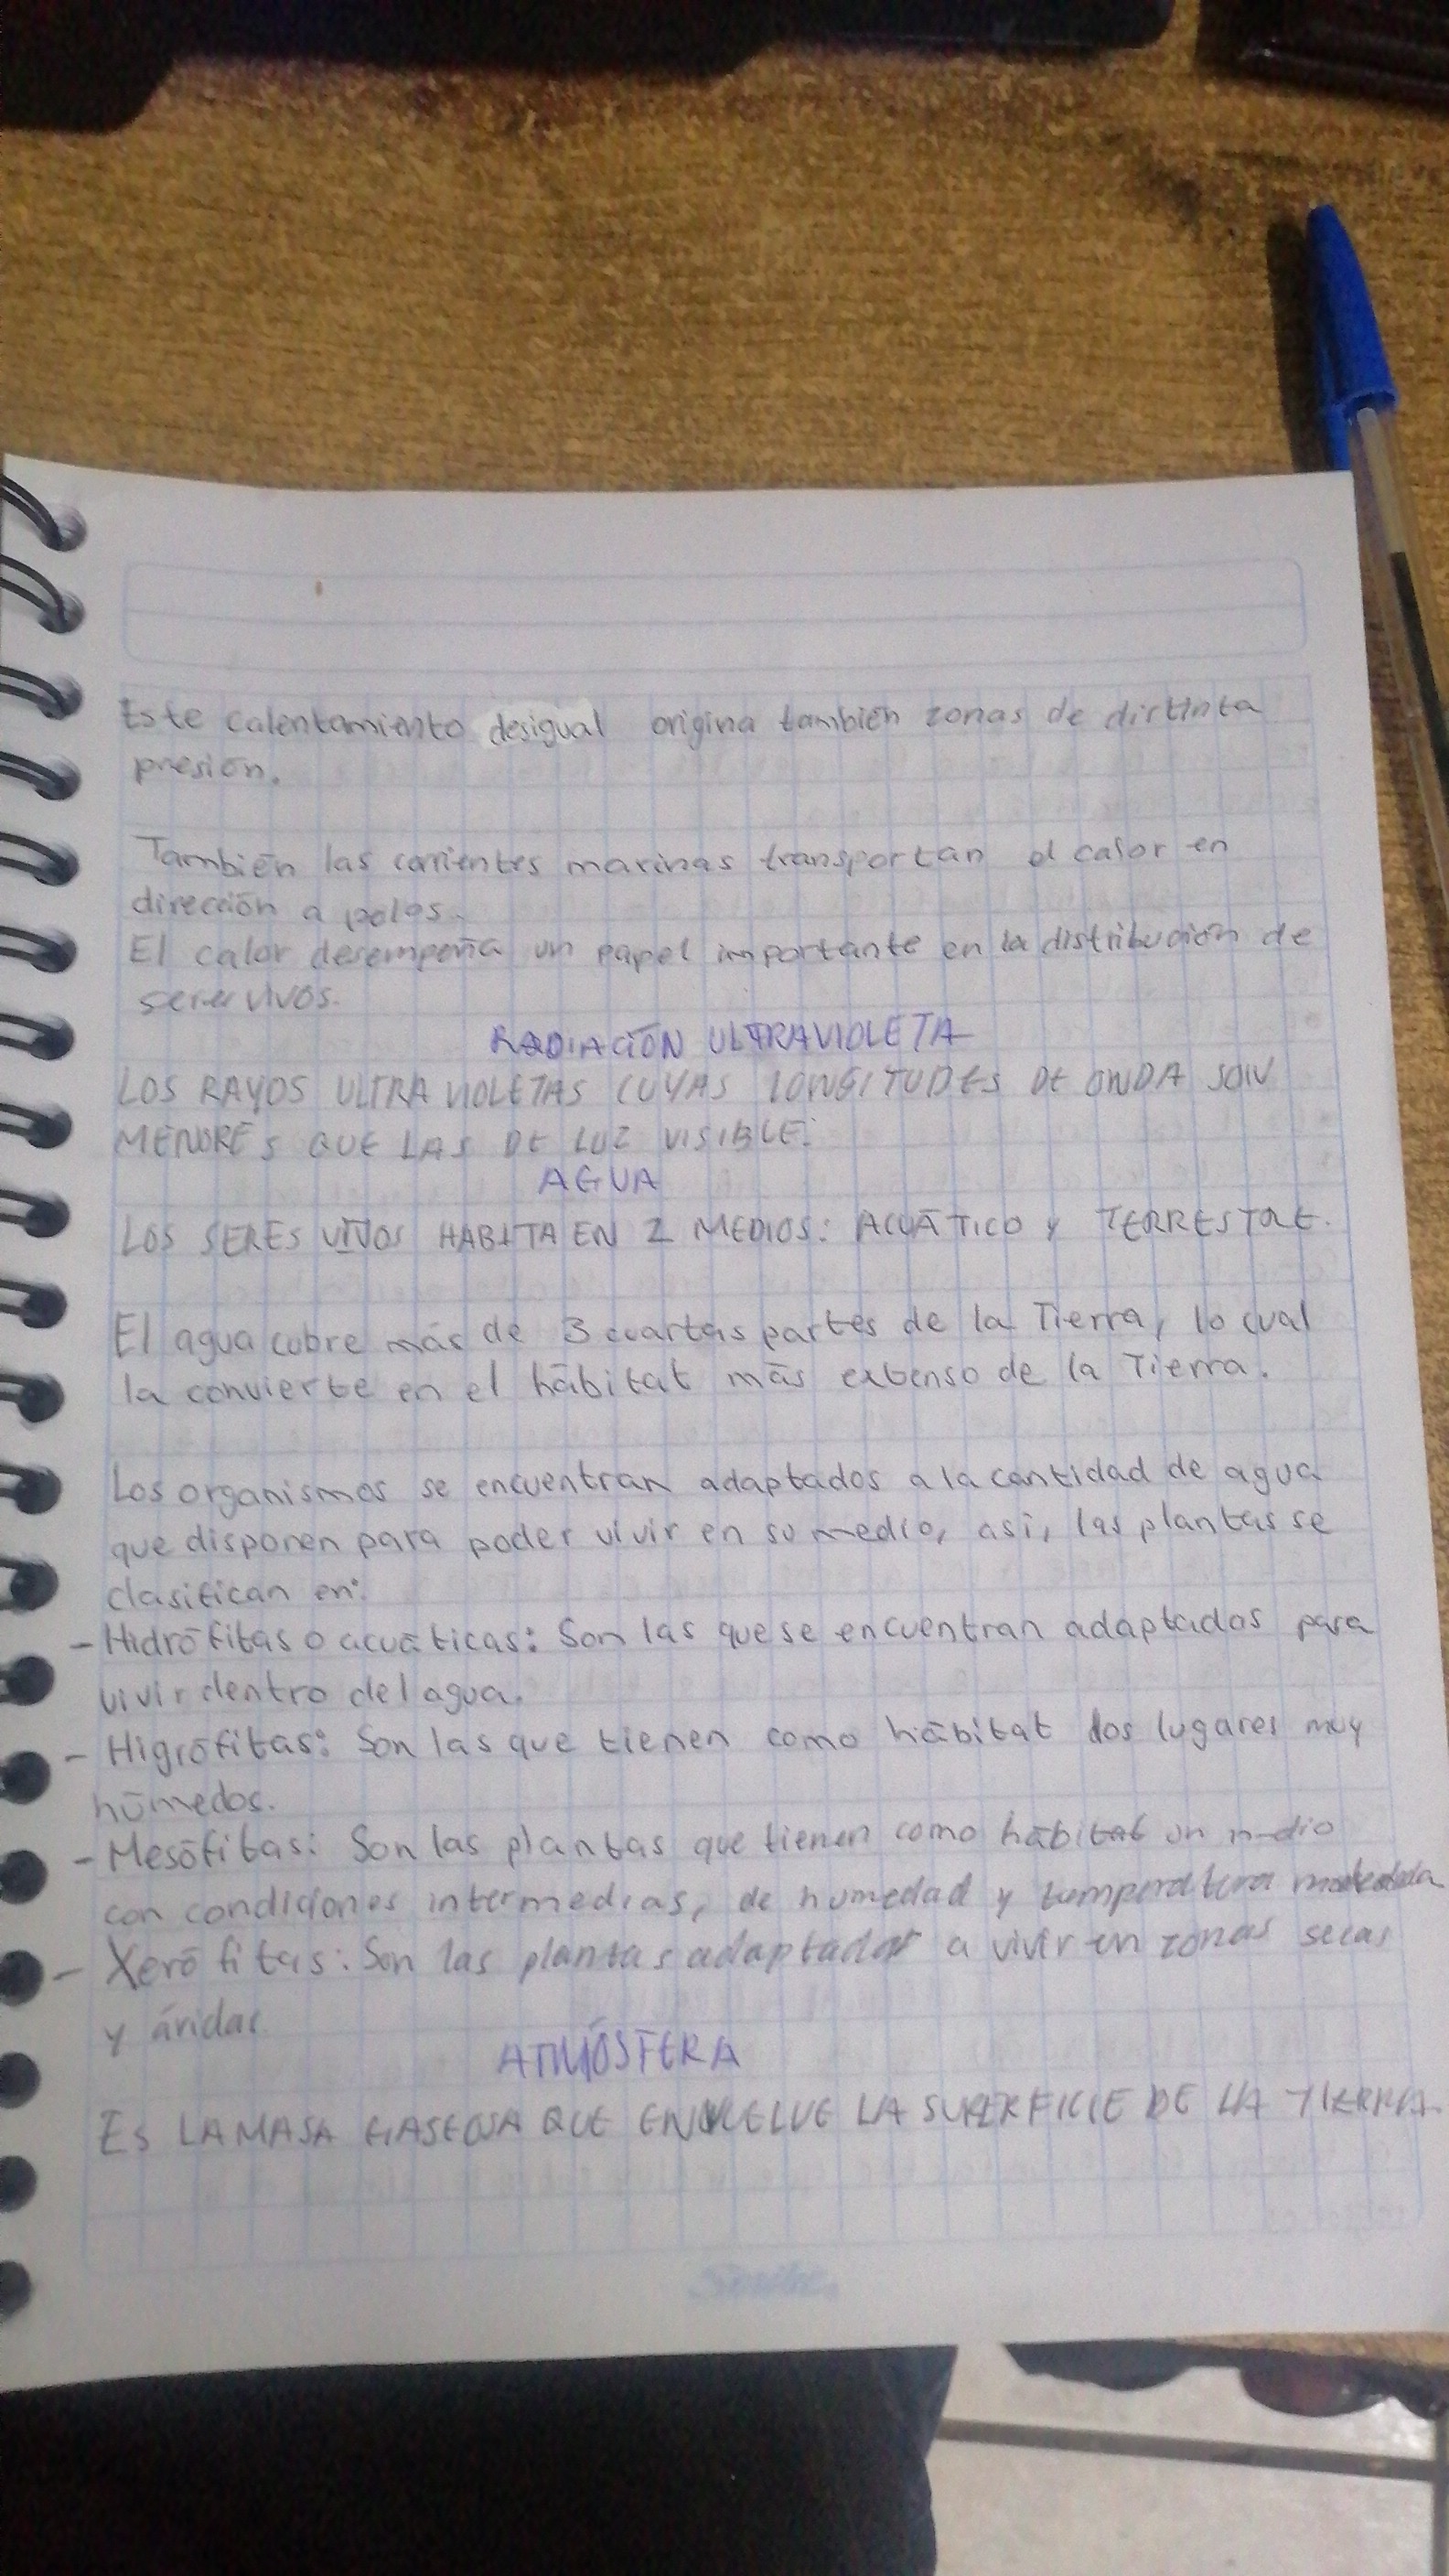 Este calentamiento desigual origina también zonas de distinta
presión.
También las corrientes marinas transportan el calor en
dirección a polos.
El calor desempeña un papel importante en la distribución de
seres vivos.
RADIACIÓN ULTRAVIOLETA
LOS RAYOS ULTRAVIOLETAS CUYAS LONGITUDES DE ONDA SON
MENORES QUE LAS DE LUZ VISIBLE.
AGUA
LOS SERES VIVOS HABITA EN 2 MEDIOS: ACUÁTICO Y TERRESTRE.
El agua cubre más de 3 cuartas partes de la Tierra, lo cual
la convierte en el hábitat más extenso de la Tierra.
Los organismos se encuentran adaptados a la cantidad de agua
que disponen para poder vivir en su medio, así, las plantas se
clasifican en:
- Hidrófitas o acuáticas: Son las que se encuentran adaptados para
vivir dentro del agua.
- Higrófitas: Son las que tienen como hábitat los lugares muy
húmedos.
- Mesófitas: Son las plantas que tienen como hábitat un medio
con condiciones intermedias, de humedad y temperatura moderada
- Xerófitas: Son las plantas adaptadas a vivir en zonas secas
y áridas
ATMÓSFERA
ES LA MASA GASEOSA QUE ENVUELVE LA SUPERFICIE DE LA TIERRA.